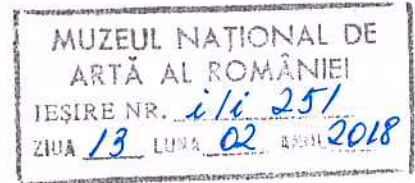 MUZEUL NAȚIONAL DE
ARTĂ AL ROMÂNIEI
IEȘIRE NR. i/i 251
ZIUA 13 LUNA 02 ANUL 2018